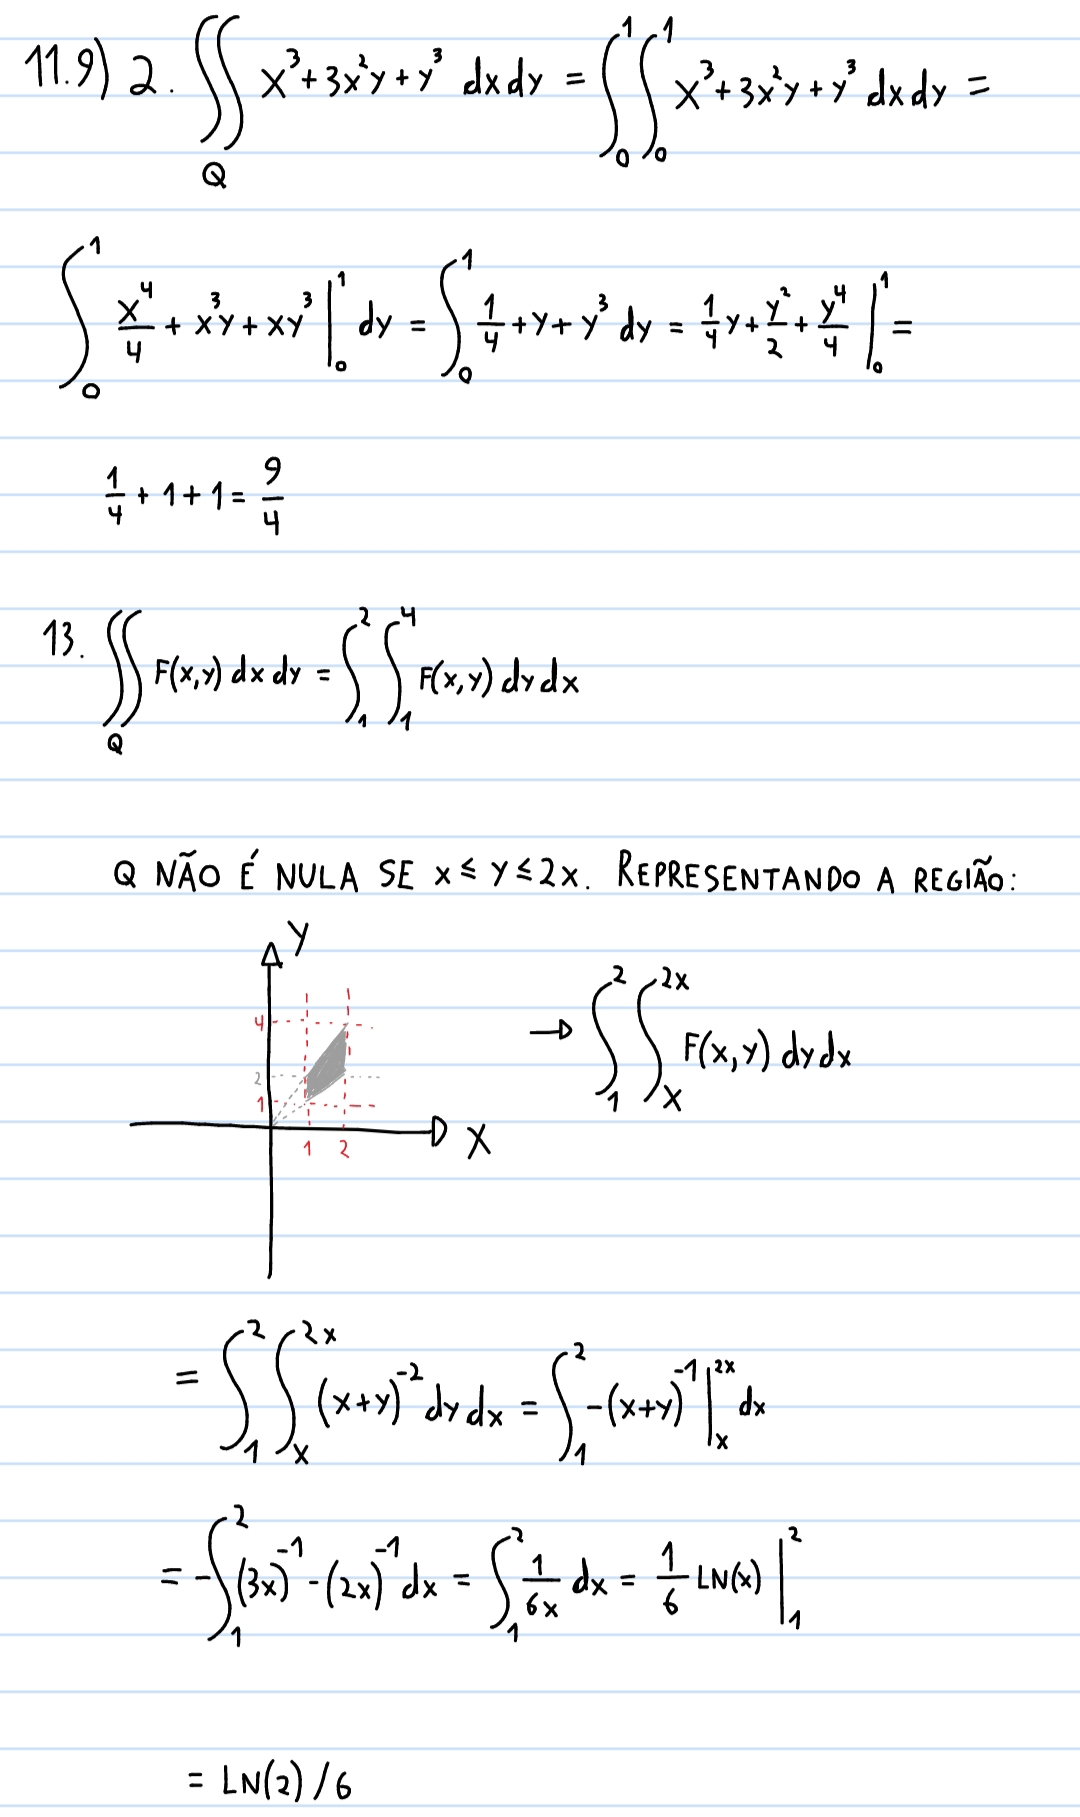 11.9) 2. ∬_Q x³+3x²y+y³ dxdy = ∫₀¹∫₀¹ x³+3x²y+y³ dxdy =
∫₀¹ x⁴/4 + x³y + xy³ |₀¹ dy = ∫₀¹ 1/4 + y + y³ dy = 1/4 y + y²/2 + y⁴/4 |₀¹ =
1/4 + 1 + 1 = 9/4
13. ∬_Q F(x,y) dx dy = ∫₁²∫₁⁴ F(x,y) dy dx
Q NÃO É NULA SE x ≤ y ≤ 2x. REPRESENTANDO A REGIÃO:
Y
4
2
1
1 2
X
→ ∫₁²∫ₓ²ˣ F(x,y) dy dx
= ∫₁²∫ₓ²ˣ (x+y)⁻² dy dx = ∫₁² -(x+y)⁻¹ |ₓ²ˣ dx
= -∫₁² (3x)⁻¹ - (2x)⁻¹ dx = ∫₁² 1/6x dx = 1/6 LN(x) |₁²
= LN(2)/6